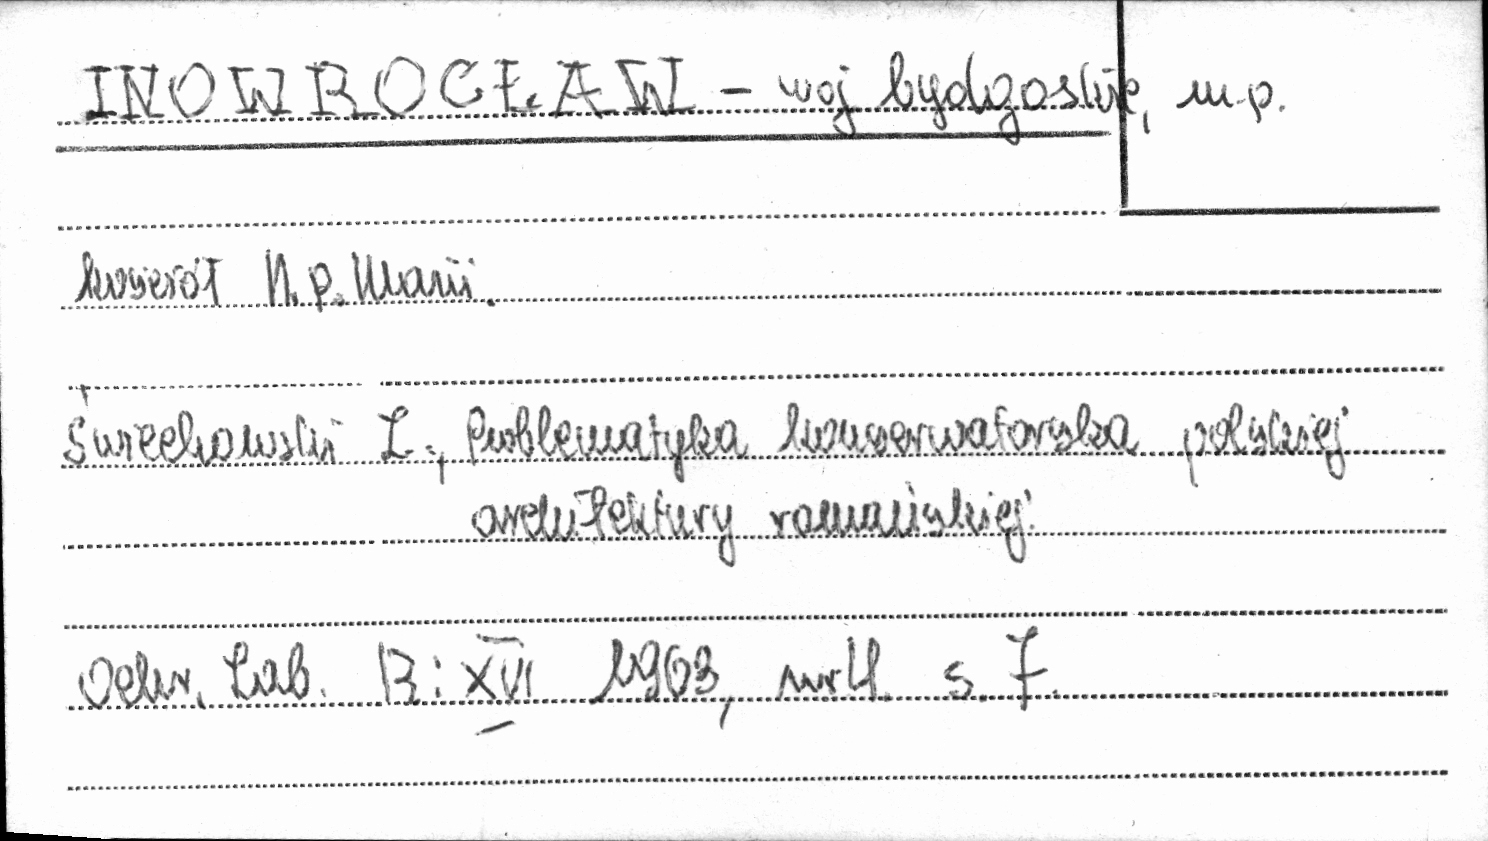 INOWROCŁAW – woj bydgoskie, m.p.
kościół N.p. Marii.
Świechowski Z., Problematyka konserwatorska polskiej
architektury romańskiej.
Ochr. Zab. R: XVI 1963, nr 4. s. 7.